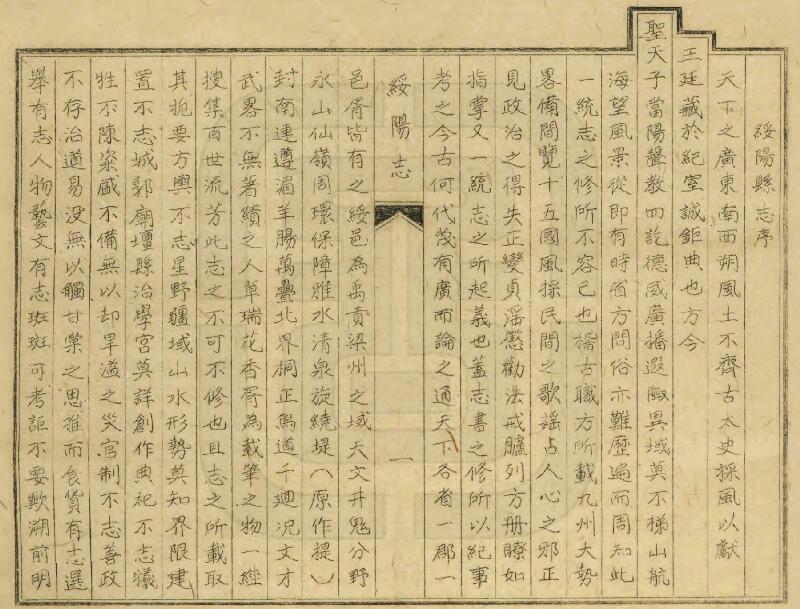 綏陽縣志序
天下之廣東南西朔風土不齊古太史採風以獻
王廷藏於紀室誠鉅典也方今
聖天子當陽聲教四訖德威廣播遐陬異域莫不梯山航
海望風景從即有時省方問俗亦難歷遍而周知此
一統志之修所不容已也稽古職方所載九州大勢
畧備間覽十五國風採民間之歌謠占人心之邪正
見政治之得失正變貞淫懲勸法戒臚列方册瞭如
指掌又一統志之所起義也蓋志書之修所以紀事
考之今古何代蔑有廣而論之通天下各省一郡一
綏陽志
一
邑胥皆有之綏邑為禹貢梁州之域天文井鬼分野
水山仙嶺周環保障雅水清泉旋繞堤(原作提)
封南連遵湄羊腸萬疊北界桐正鳥道千廻况文才
武畧不無著績之人草瑞花香胥為載筆之物一經
搜集百世流芳此志之不可不修也且志之所載取
其扼要方輿不志星野疆域山水形勢奠知界限建
置不志城郭廟壇縣治學宮奠詳創作典祀不志犧
牲不陳粢盛不備無以却旱溢之災官制不志善政
不存治道易没無以觸甘棠之思推而食貨有志選
舉有志人物藝文有志班班可考詎不要歟溯前明